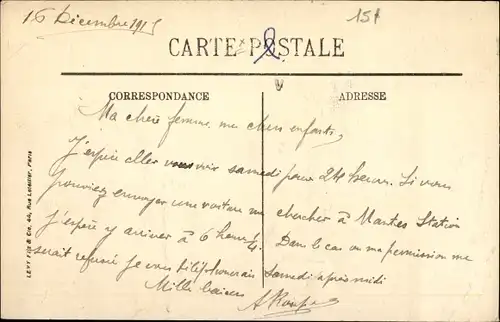 16 Décembre 1915
15f
CARTE POSTALE
CORRESPONDANCE
ADRESSE
Ma chère femme, mes chers enfants,
J'espère aller vous voir samedi pour 24 heures. Si vous
pouviez envoyer une voiture me chercher à Mantes Station
J'espère y arriver à 6 heures 1/4. Dans le cas ou ma permission me
serait refusée je vous téléphonerais Samedi après midi
Mille baisers
LEVY Fils & Cie, 44, Rue Letellier, Paris